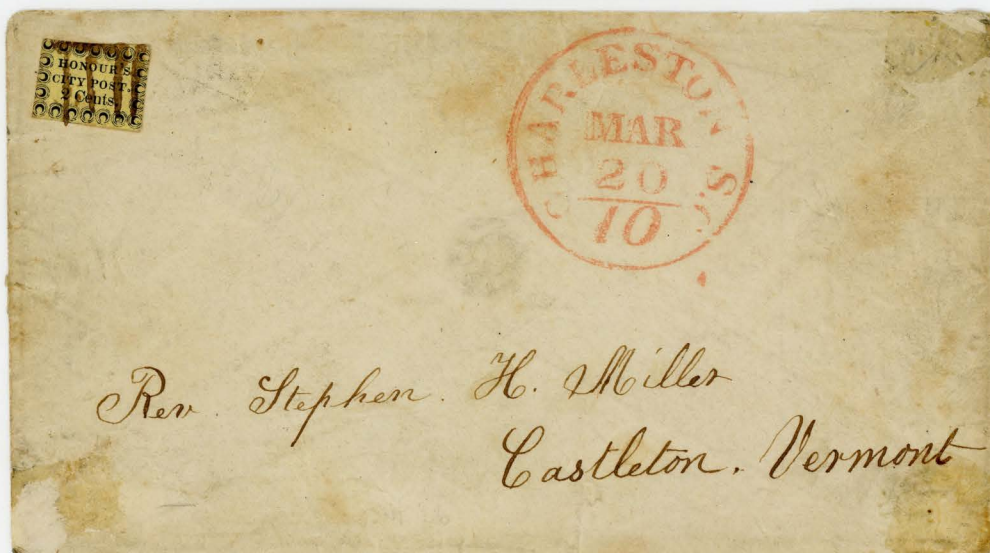 HONOUR'S
CITY POST.
2 Cents.
CHARLESTON S.C.
MAR
20
10
Rev. Stephen. H. Miller
Castleton. Vermont